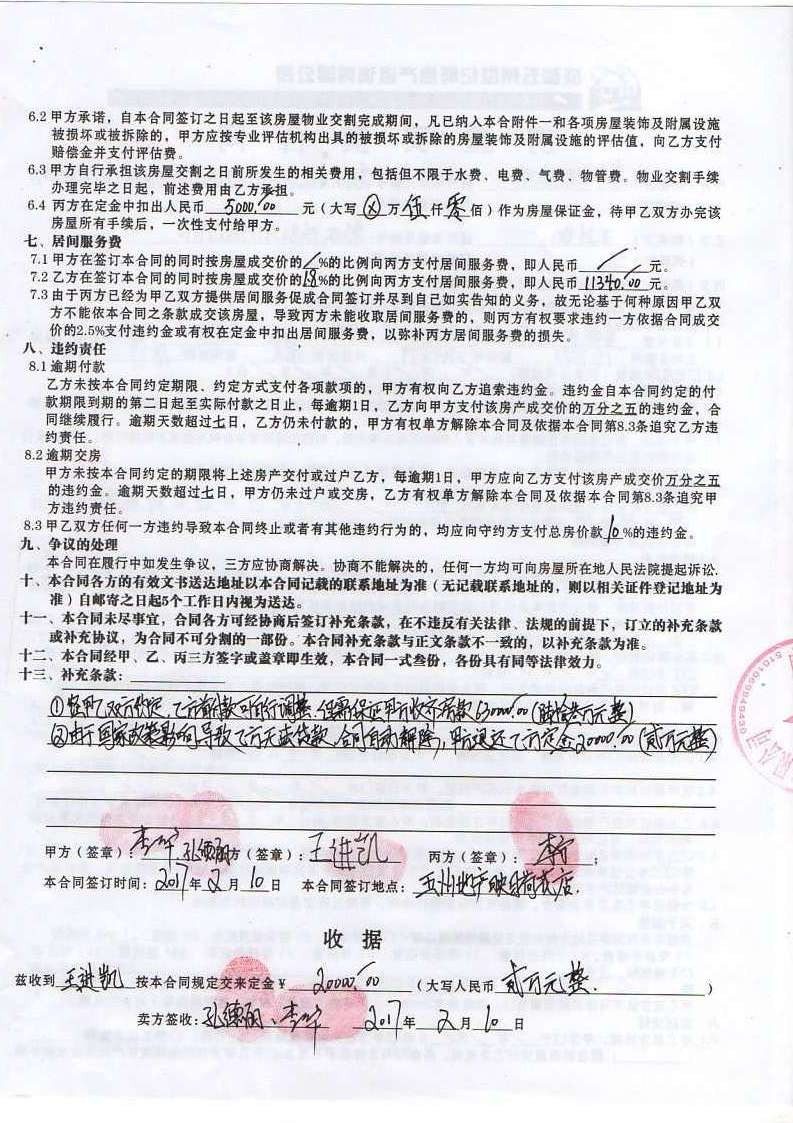 6.2 甲方承诺，自本合同签订之日起至该房屋物业交割完成期间，凡已纳入本合附件一和各项房屋装饰及附属设施
被损坏或被拆除的，甲方应按专业评估机构出具的被损坏或拆除的房屋装饰及附属设施的评估值，向乙方支付
赔偿金并支付评估费。
6.3 甲方自行承担该房屋交割之日前所发生的相关费用，包括但不限于水费、电费、气费、物管费。物业交割手续
办理完毕之日起，前述费用由乙方承担。
6.4 丙方在定金中扣出人民币 5000.00 元（大写 ⓧ 万 伍 仟 零 佰）作为房屋保证金，待甲乙双方办完该
房屋所有手续后，一次性支付给甲方。
七、居间服务费
7.1 甲方在签订本合同的同时按房屋成交价的 / %的比例向丙方支付居间服务费，即人民币 / 元。
7.2 乙方在签订本合同的同时按房屋成交价的1.8%的比例向丙方支付居间服务费，即人民币 11340.00 元。
7.3 由于丙方已经为甲乙双方提供居间服务促成合同签订并尽到自己如实告知的义务，故无论基于何种原因甲乙双
方不能依本合同之条款成交该房屋，导致丙方未能收取居间服务费的，则丙方有权要求违约一方依据合同成交
价的2.5%支付违约金或有权在定金中扣出居间服务费，以弥补丙方居间服务费的损失。
八、违约责任
8.1 逾期付款
乙方未按本合同约定期限、约定方式支付各项款项的，甲方有权向乙方追索违约金。违约金自本合同约定的付
款期限到期的第二日起至实际付款之日止，每逾期1日，乙方向甲方支付该房产成交价的万分之五的违约金，合
同继续履行。逾期天数超过七日，乙方仍未付款的，甲方有权单方解除本合同及依据本合同第8.3条追究乙方违
约责任。
8.2 逾期交房
甲方未按本合同约定的期限将上述房产交付或过户乙方，每逾期1日，甲方应向乙方支付该房产成交价万分之五
的违约金。逾期天数超过七日，甲方仍未过户或交房，乙方有权单方解除本合同及依据本合同第8.3条追究甲
方违约责任。
8.3 甲乙双方任何一方违约导致本合同终止或者有其他违约行为的，均应向守约方支付总房价款 10 %的违约金。
九、争议的处理
本合同在履行中如发生争议，三方应协商解决。协商不能解决的，任何一方均可向房屋所在地人民法院提起诉讼.
十、本合同各方的有效文书送达地址以本合同记载的联系地址为准（无记载联系地址的，则以相关证件登记地址为
准）自邮寄之日起5个工作日内视为送达。
十一、本合同未尽事宜，合同各方可经协商后签订补充条款，在不违反有关法律、法规的前提下，订立的补充条款
或补充协议，为合同不可分割的一部份。本合同补充条款与正文条款不一致的，以补充条款为准。
十二、本合同经甲、乙、丙三方签字或盖章即生效，本合同一式叁份，各份具有同等法律效力。
十三、补充条款：
①经甲乙双方约定，乙方首付款可自行调整，但需保证甲方收齐房款630000.00（陆拾叁万元整）
②由于国家政策影响导致乙方无法贷款，合同自动解除，甲方退还乙方定金20000.00（贰万元整）
甲方（签章）：李 孔德丽 方（签章）：王进凯 丙方（签章）：李宁；
本合同签订时间：2017年2月10日 本合同签订地点：五州地产映月荷花店.
收据
兹收到 王进凯 按本合同规定交来定金¥ 20000.00（大写人民币 贰万元整.）
卖方签收：孔德丽、李 2017年2月10日
5101069949430
限公司